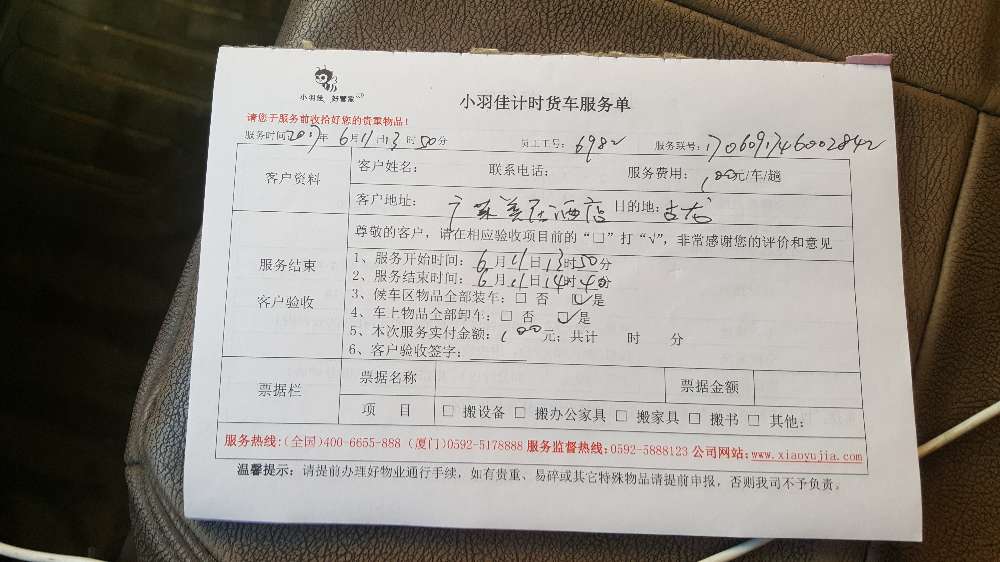 小羽佳 好管家
小羽佳计时货车服务单
请您于服务前收拾好您的贵重物品！
服务时间2017年6月11日13时50分 员工工号：6982 服务联号：1706091746002842
客户资料
客户姓名： 联系电话： 服务费用：100元/车/趟
客户地址：美居酒店 目的地：古龙
尊敬的客户，请在相应验收项目前的“□”打“√”，非常感谢您的评价和意见
服务结束
客户验收
1、服务开始时间：6月11日13时50分
2、服务结束时间：6月11日14时40分
3、候车区物品全部装车：□ 否 ☑是
4、车上物品全部卸车：□ 否 ☑是
5、本次服务实付金额：100元；共计 时 分
6、客户验收签字：
票据栏
票据名称 票据金额
项 目 □ 搬设备 □ 搬办公家具 □ 搬家具 □ 搬书 □ 其他：
服务热线：(全国)400-6655-888 (厦门)0592-5178888 服务监督热线：0592-5888123 公司网站：www.xiaoyujia.com
温馨提示：请提前办理好物业通行手续，如有贵重、易碎或其它特殊物品请提前申报，否则我司不予负责。